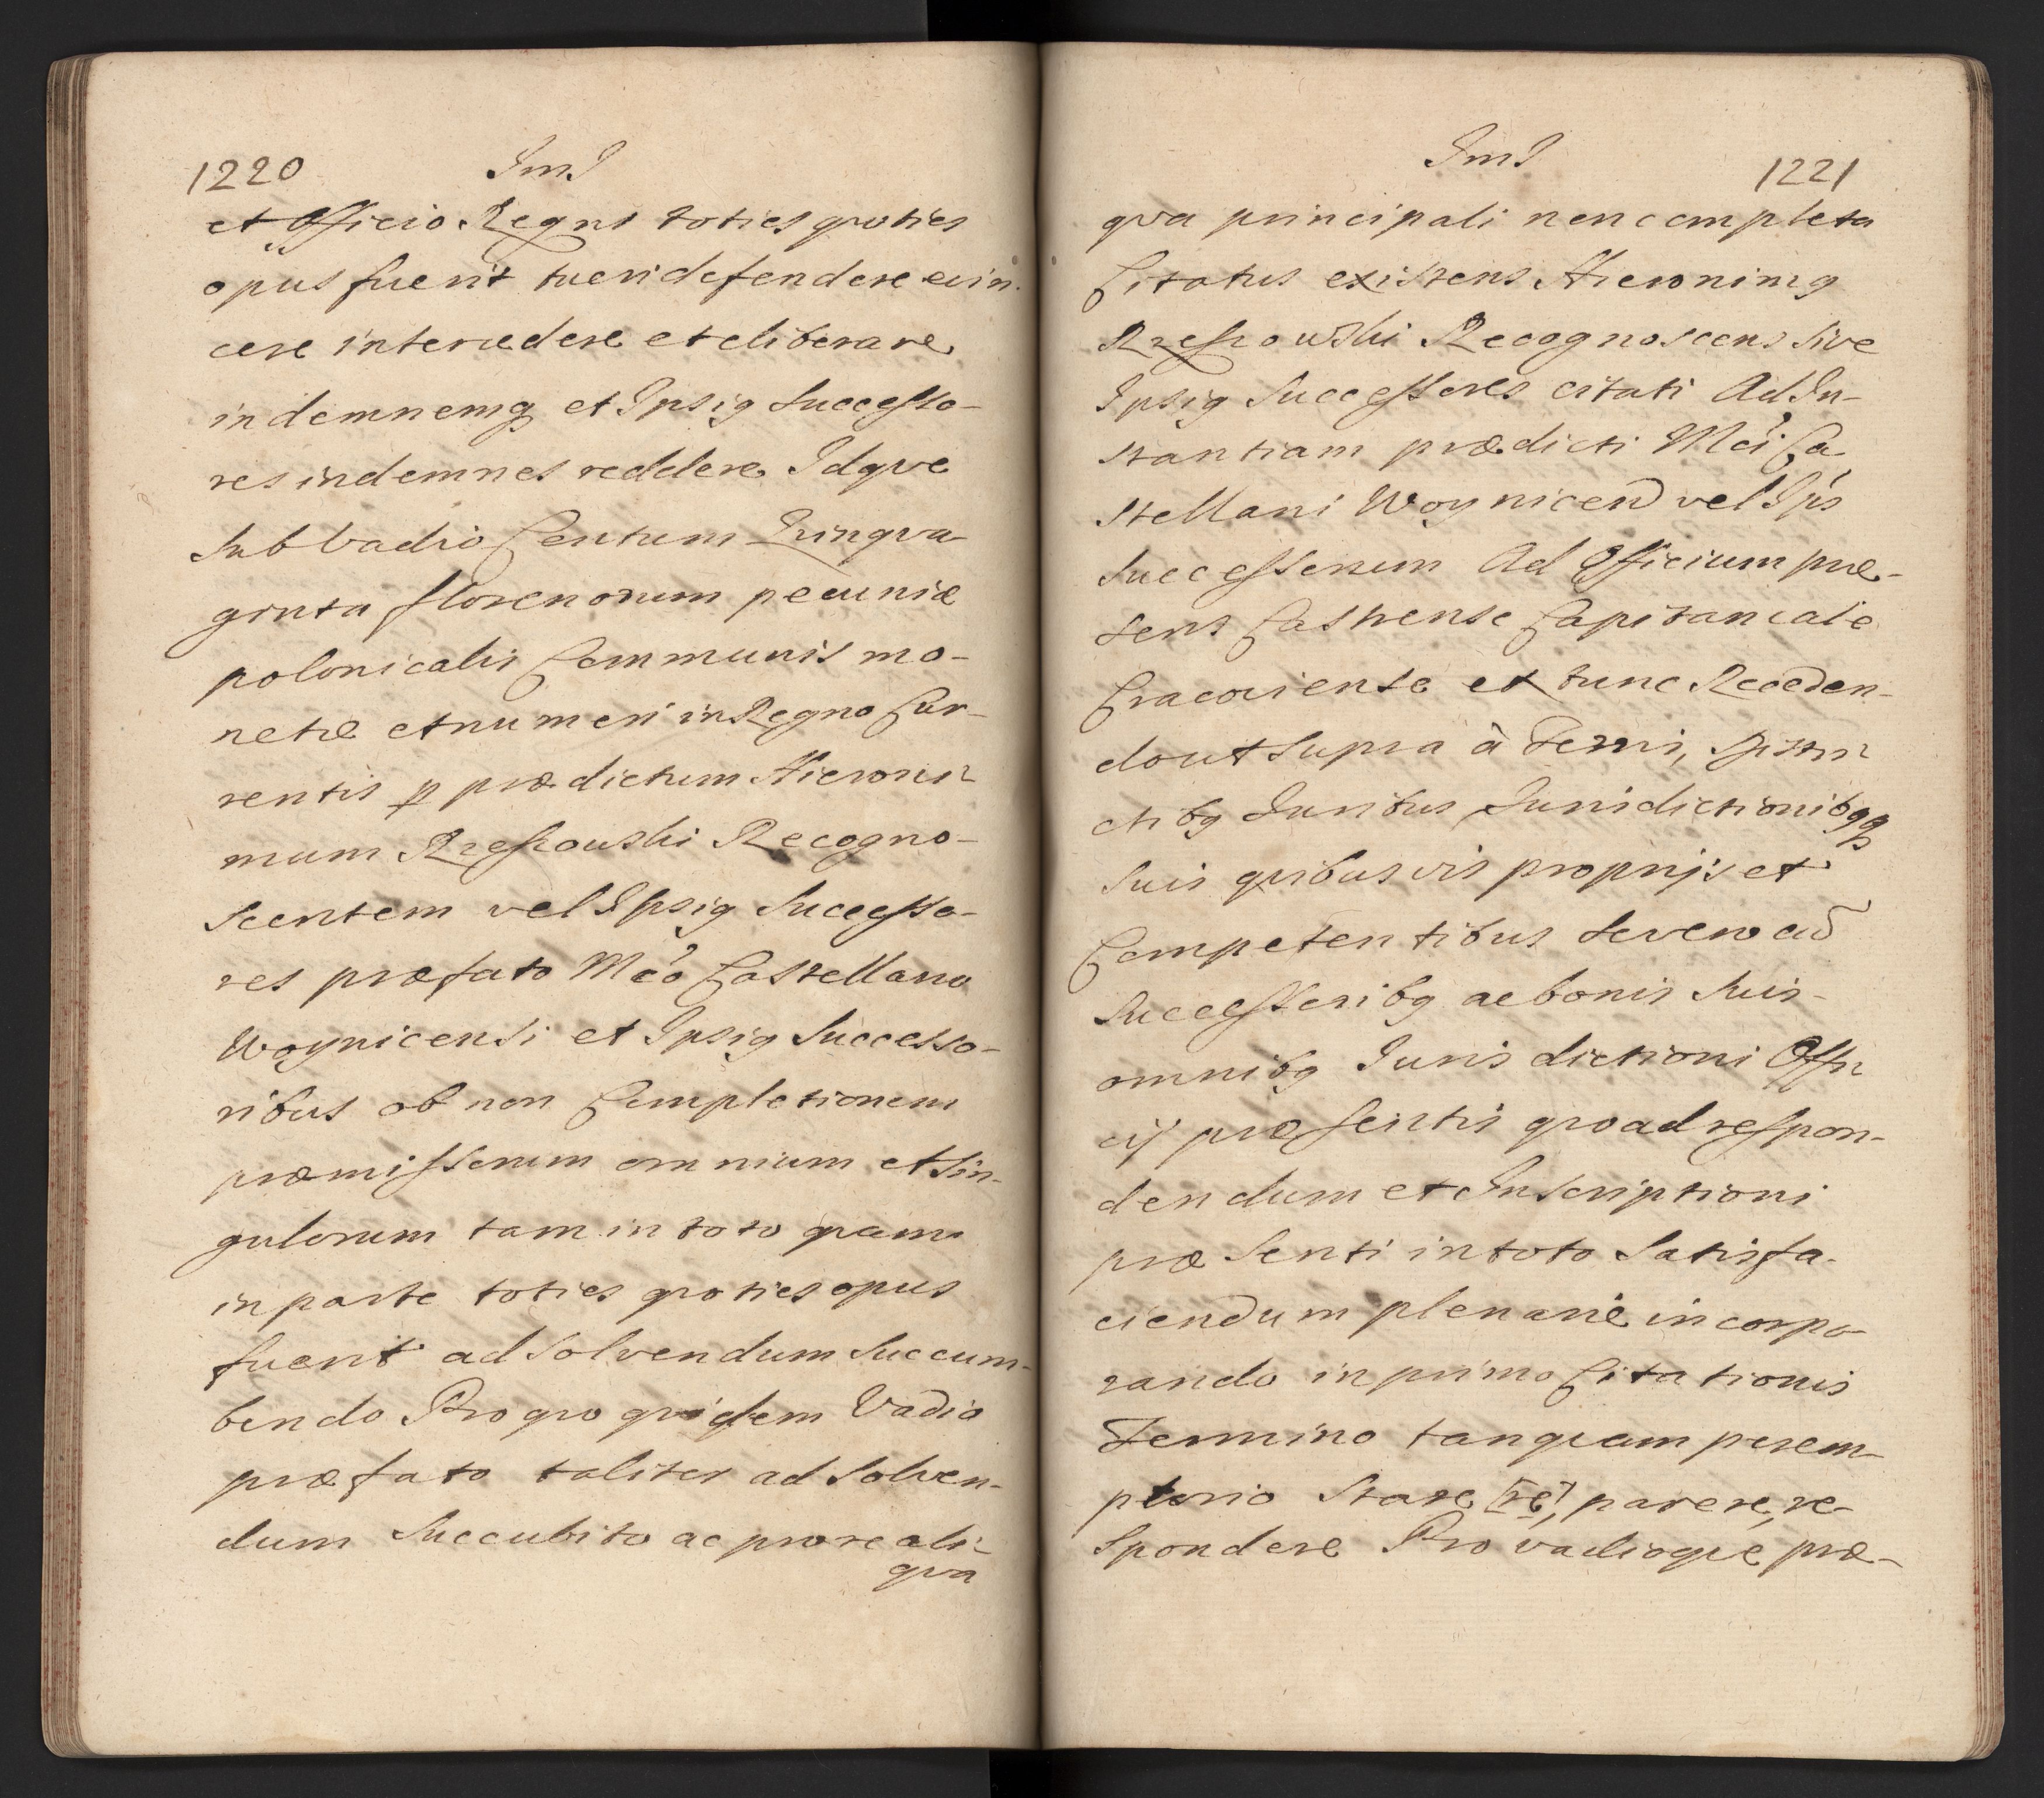 1220 JmJ
et Officio Regni toties quoties
opus fuerit tueri defendere evin-
cere intercedere et eliberare
indemnemq et Ipsiq Successo-
res indemnes reddere Idque
sub Vadio Centum Quinqua
ginta florenorum pecuniæ
polonicalis Communis mo-
netæ et numeri in Regno Cur-
rentis p prædictum Hieroni-
mum Rzeszowski Recogno-
scentem vel Ipsiq Successo-
res præfato Mco Castellano
Woynicensi et Ipsiq Successo-
ribus ob non Completionem
præmissorum omnium et sin-
gulorum tam in toto quam
in parte toties quoties opus
fuerit ad solvendum Succum-
bendo Pro quo quidem Vadio
præfato taliter ad solven-
dum Succubito ac pro re ali-
qua
JmJ 1221
qva principali non completa
Citatus existens Hieronimq
Rzeszowski Recognoscens sive
Ipsiq Successores citati Ad In-
stantiam prædicti Mci Ca
stellani Woynicen vel Ips
Successorum Ad Officium præ-
sens Castrense Capitaneale
Cracoviense et tunc Receden-
do ut supra à Terris, Distri
ctibq Juribus Jurisdictionibqq
suis quibusvis proprijs et
Competentibus se vero cu
Successoribq ac bonis suis
omnibq Juris dictioni Offi
cij præsentis quoad respon-
dendum et Inscriptioni
præsenti in toto Satisfa-
ciendum plenarie incorpo-
rando in primo Citationis
Termino tanquam perem-
ptorio Stare [re], parere, re-
spondere Pro vadioque præ-